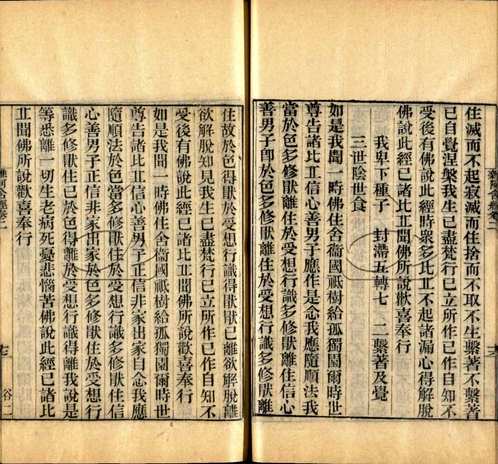 住滅而不起寂滅而住捨而不取不生繫著不繫著
已自覺涅槃我生已盡梵行已立所作已作自知不
受後有佛說此經時眾多比丘不起諸漏心得解脫
佛說此經已諸比丘聞佛所說歡喜奉行
我卑下種子 封滯五轉七 二繫著及覺
三世陰世食
如是我聞一時佛住舍衞國祇樹給孤獨園爾時世
尊告諸比丘信心善男子應作是念我應隨順法我
當於色多修厭離住於受想行識多修厭離住信心
善男子卽於色多修厭離住於受想行識多修厭離
住故於色得厭於受想行識得厭已離欲解脫
欲解脫知見我生已盡梵行已立所作已作自知不
受後有佛說此經已諸比丘聞佛所說歡喜奉行
如是我聞一時佛住舍衞國祇樹給孤獨園爾時世
尊告諸比丘信心善男子正信非家出家自念我應
隨順法於色當多修厭住於受想行識多修厭住信
心善男子正信非家出家於色多修厭住於受想行
識多修厭住已於色得離於受想行識得離我說是
等悉離一切生老病死憂悲惱苦佛說此經已諸比
丘聞佛所說歡喜奉行
雜阿含經卷二
谷二